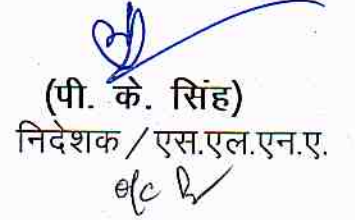 (पी. के. सिंह)
निदेशक / एस.एल.एन.ए.
o/c